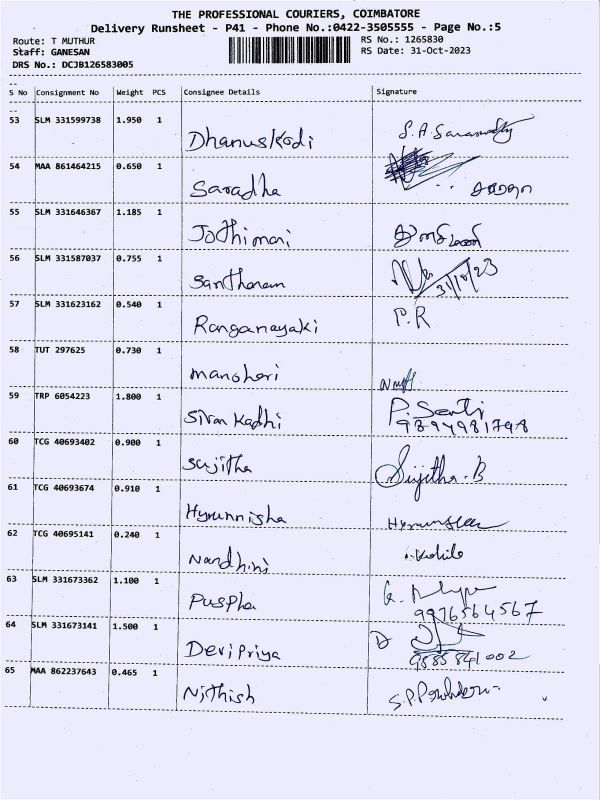 THE PROFESSIONAL COURIERS, COIMBATORE
Delivery Runsheet - P41 - Phone No.:0422-3505555 - Page No.:5
Route: T MUTHUR RS No.: 1265830
Staff: GANESAN RS Date: 31-Oct-2023
DRS No.: DCJB126583005
S No Consignment No Weight PCS Consignee Details Signature
53 SLM 331599738 1.950 1 Dhanuskodi S.A. Saraswathy
54 MAA 861464215 0.650 1 Saradha சாரதா
55 SLM 331646367 1.185 1 Jothimani
56 SLM 331587037 0.755 1 Santhanam 31/10/23
57 SLM 331623162 0.540 1 Ranganayaki P.R
58 TUT 297625 0.730 1 manohari
59 TRP 6054223 1.800 1 Sivan Kadhi P. Senti
9894981798
60 TCG 40693402 0.900 1 Sujitha Sujitha.B
61 TCG 40693674 0.910 1 Hyrunnisha
62 TCG 40695141 0.240 1 Nandhini
63 SLM 331673362 1.100 1 Puspha
9976564567
64 SLM 331673141 1.500 1 Devi Priya D
9585841002
65 MAA 862237643 0.465 1 Nithish